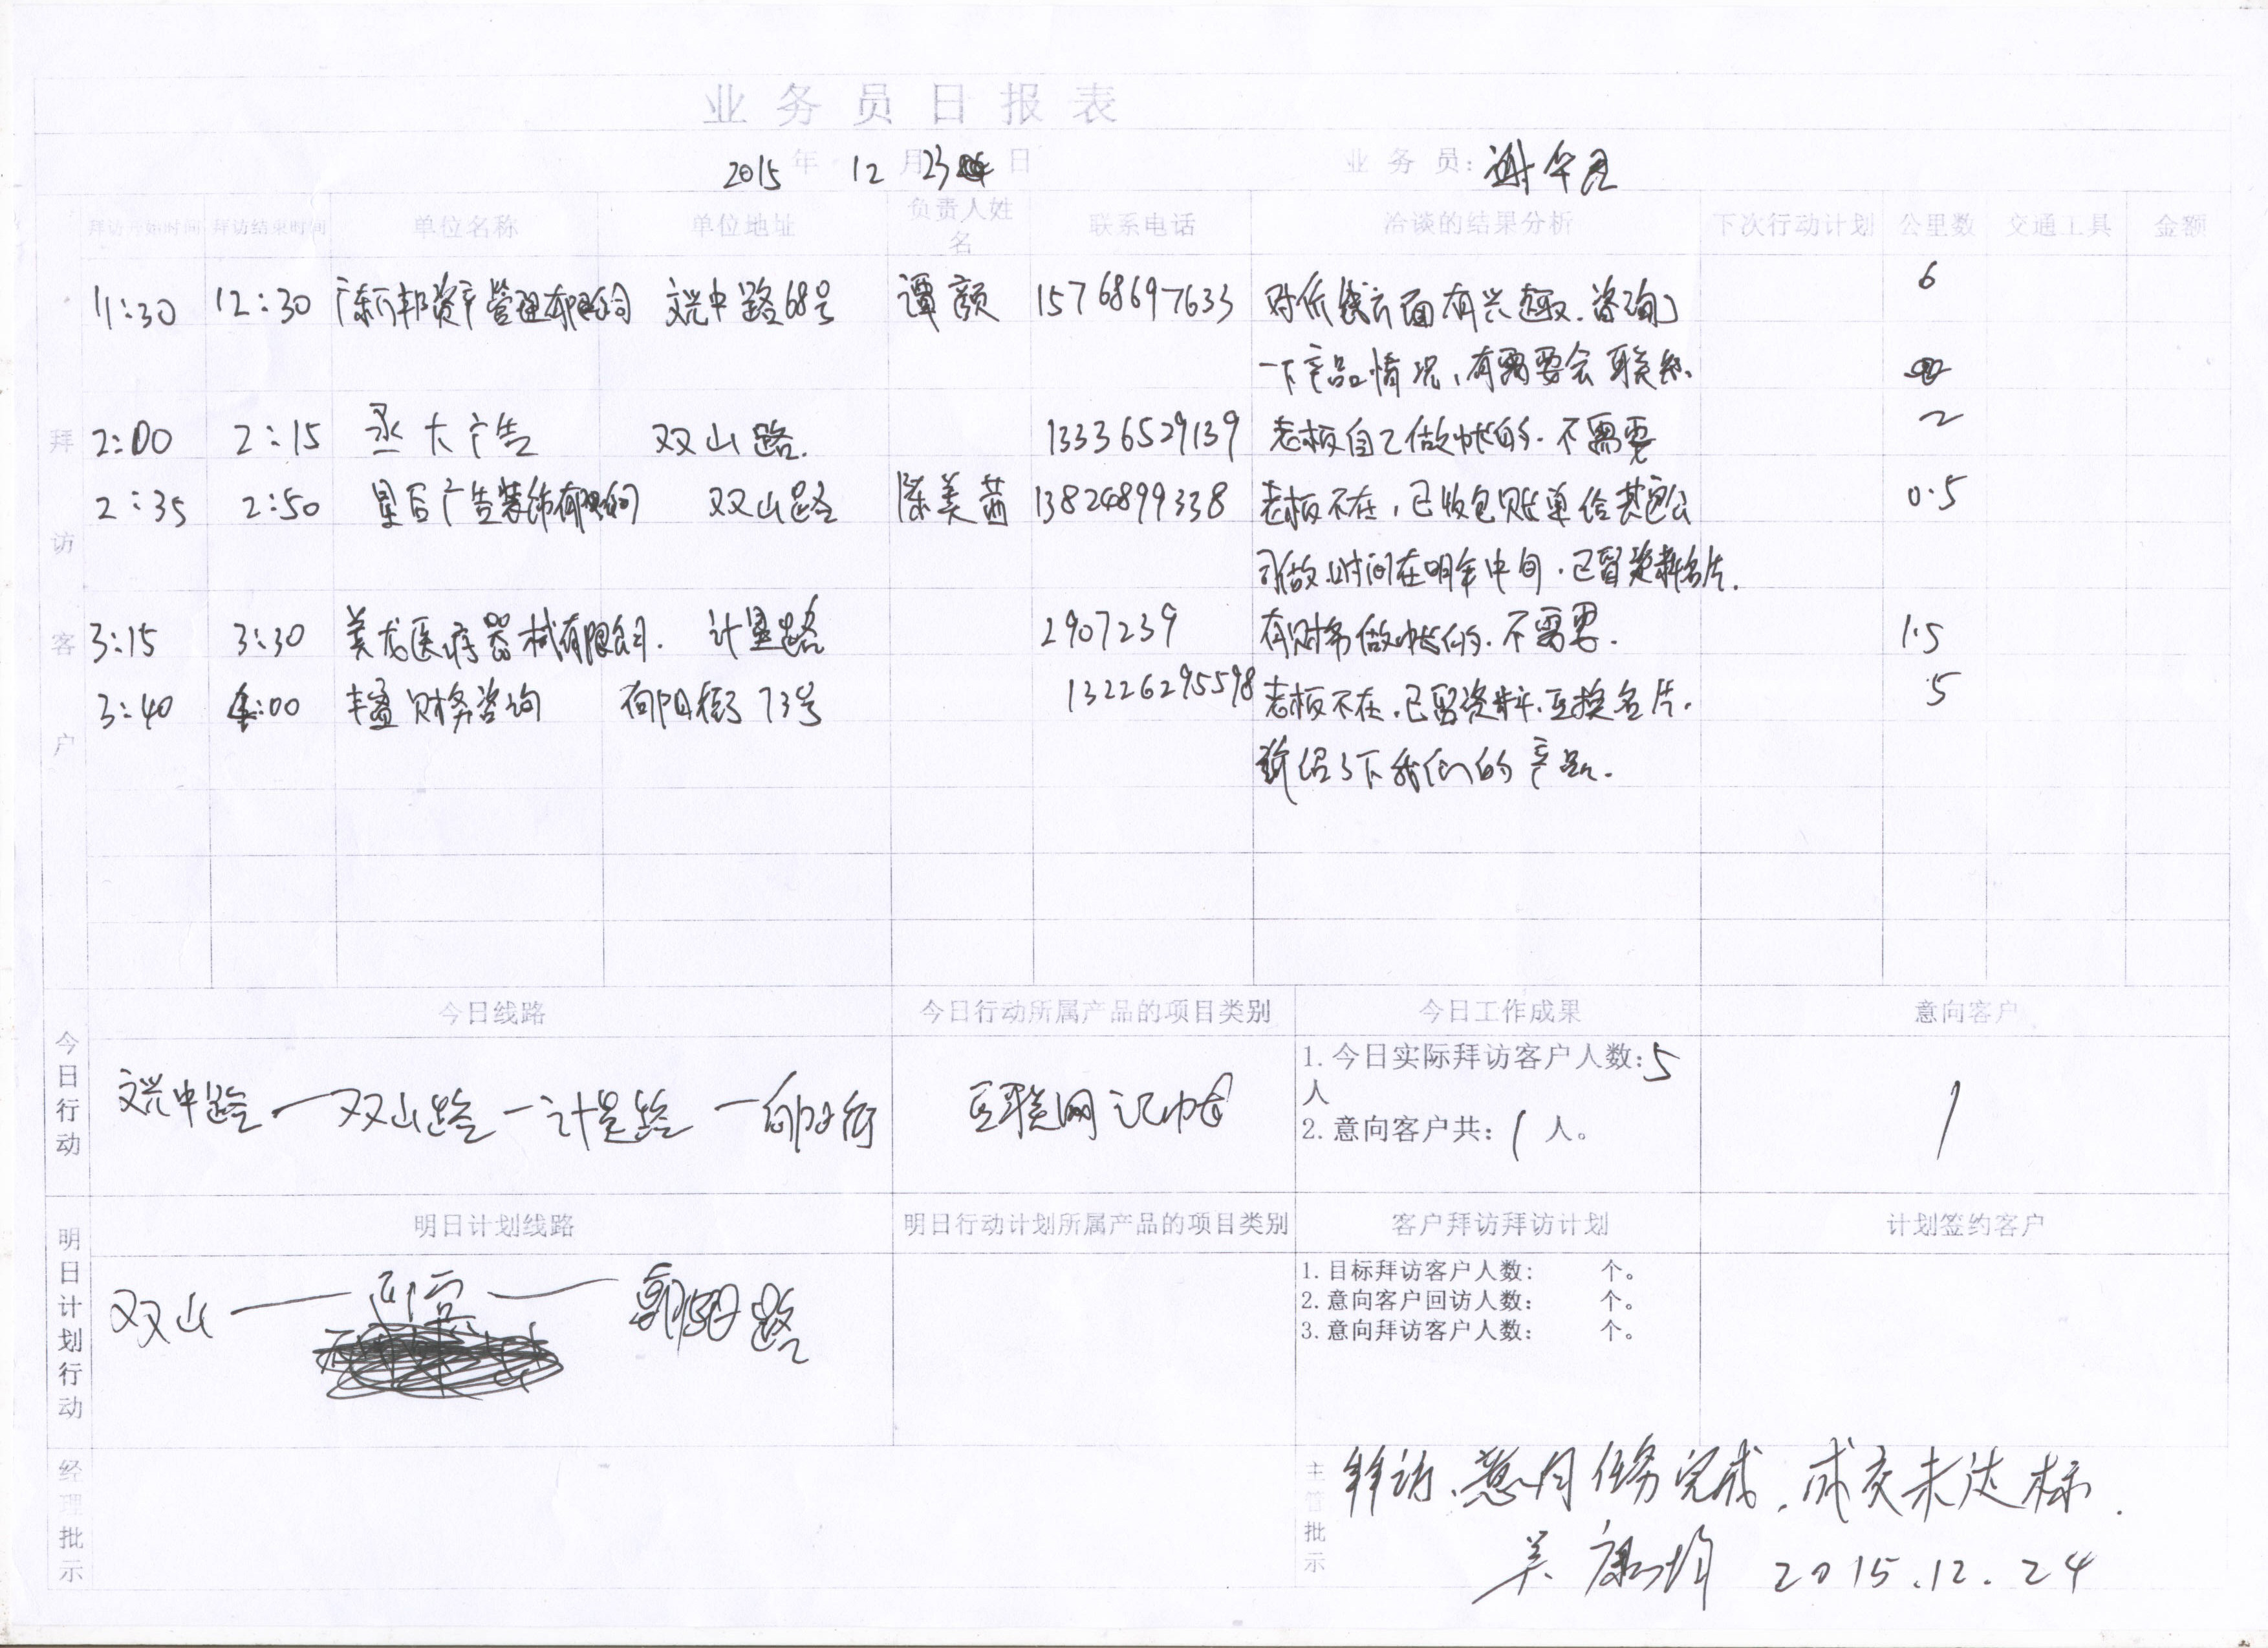 业务员日报表
2015 年 12 月 23 日 业务员: 谢华
拜访开始时间 拜访结束时间 单位名称 单位地址 负责人姓名 联系电话 洽谈的结果分析 下次行动计划 公里数 交通工具 金额
拜访客户
11:30 12:30 广东 邦资产管理有限公司 文兴中路68号 谭颜 15768697633 对价钱方面有兴趣.咨询 6
一下产品情况,有需要会联系.
2:00 2:15 丞大广告 双山路. 13336529139 老板自己做帐的.不需要 2
2:35 2:50 星后广告装饰有限公司 双山路 陈美茜 13824899338 老板不在,已收包账单给其它公 0.5
司做.时间在明年中旬.已留资料名片.
3:15 3:30 美龙医疗器械有限公司. 计量路 2907239 有财务做帐的.不需要. 1.5
3:40 4:00 丰盈财务咨询 向阳街73号 13226295598 老板不在.已留资料.互换名片. 5
绍了下我们的产品.
今日行动
今日线路 今日行动所属产品的项目类别 今日工作成果 意向客户
文兴中路—双山路—计量路—向阳街 互联网记帐 1.今日实际拜访客户人数:5
人
2.意向客户共: 1 人。 1
明日计划行动
明日计划线路 明日行动计划所属产品的项目类别 客户拜访拜访计划 计划签约客户
双山— —朝阳路
1.目标拜访客户人数: 个。
2.意向客户回访人数: 个。
3.意向拜访客户人数: 个。
经理批示
主管批示
拜访、意向任务完成,成交未达标.
吴康 2015.12.24